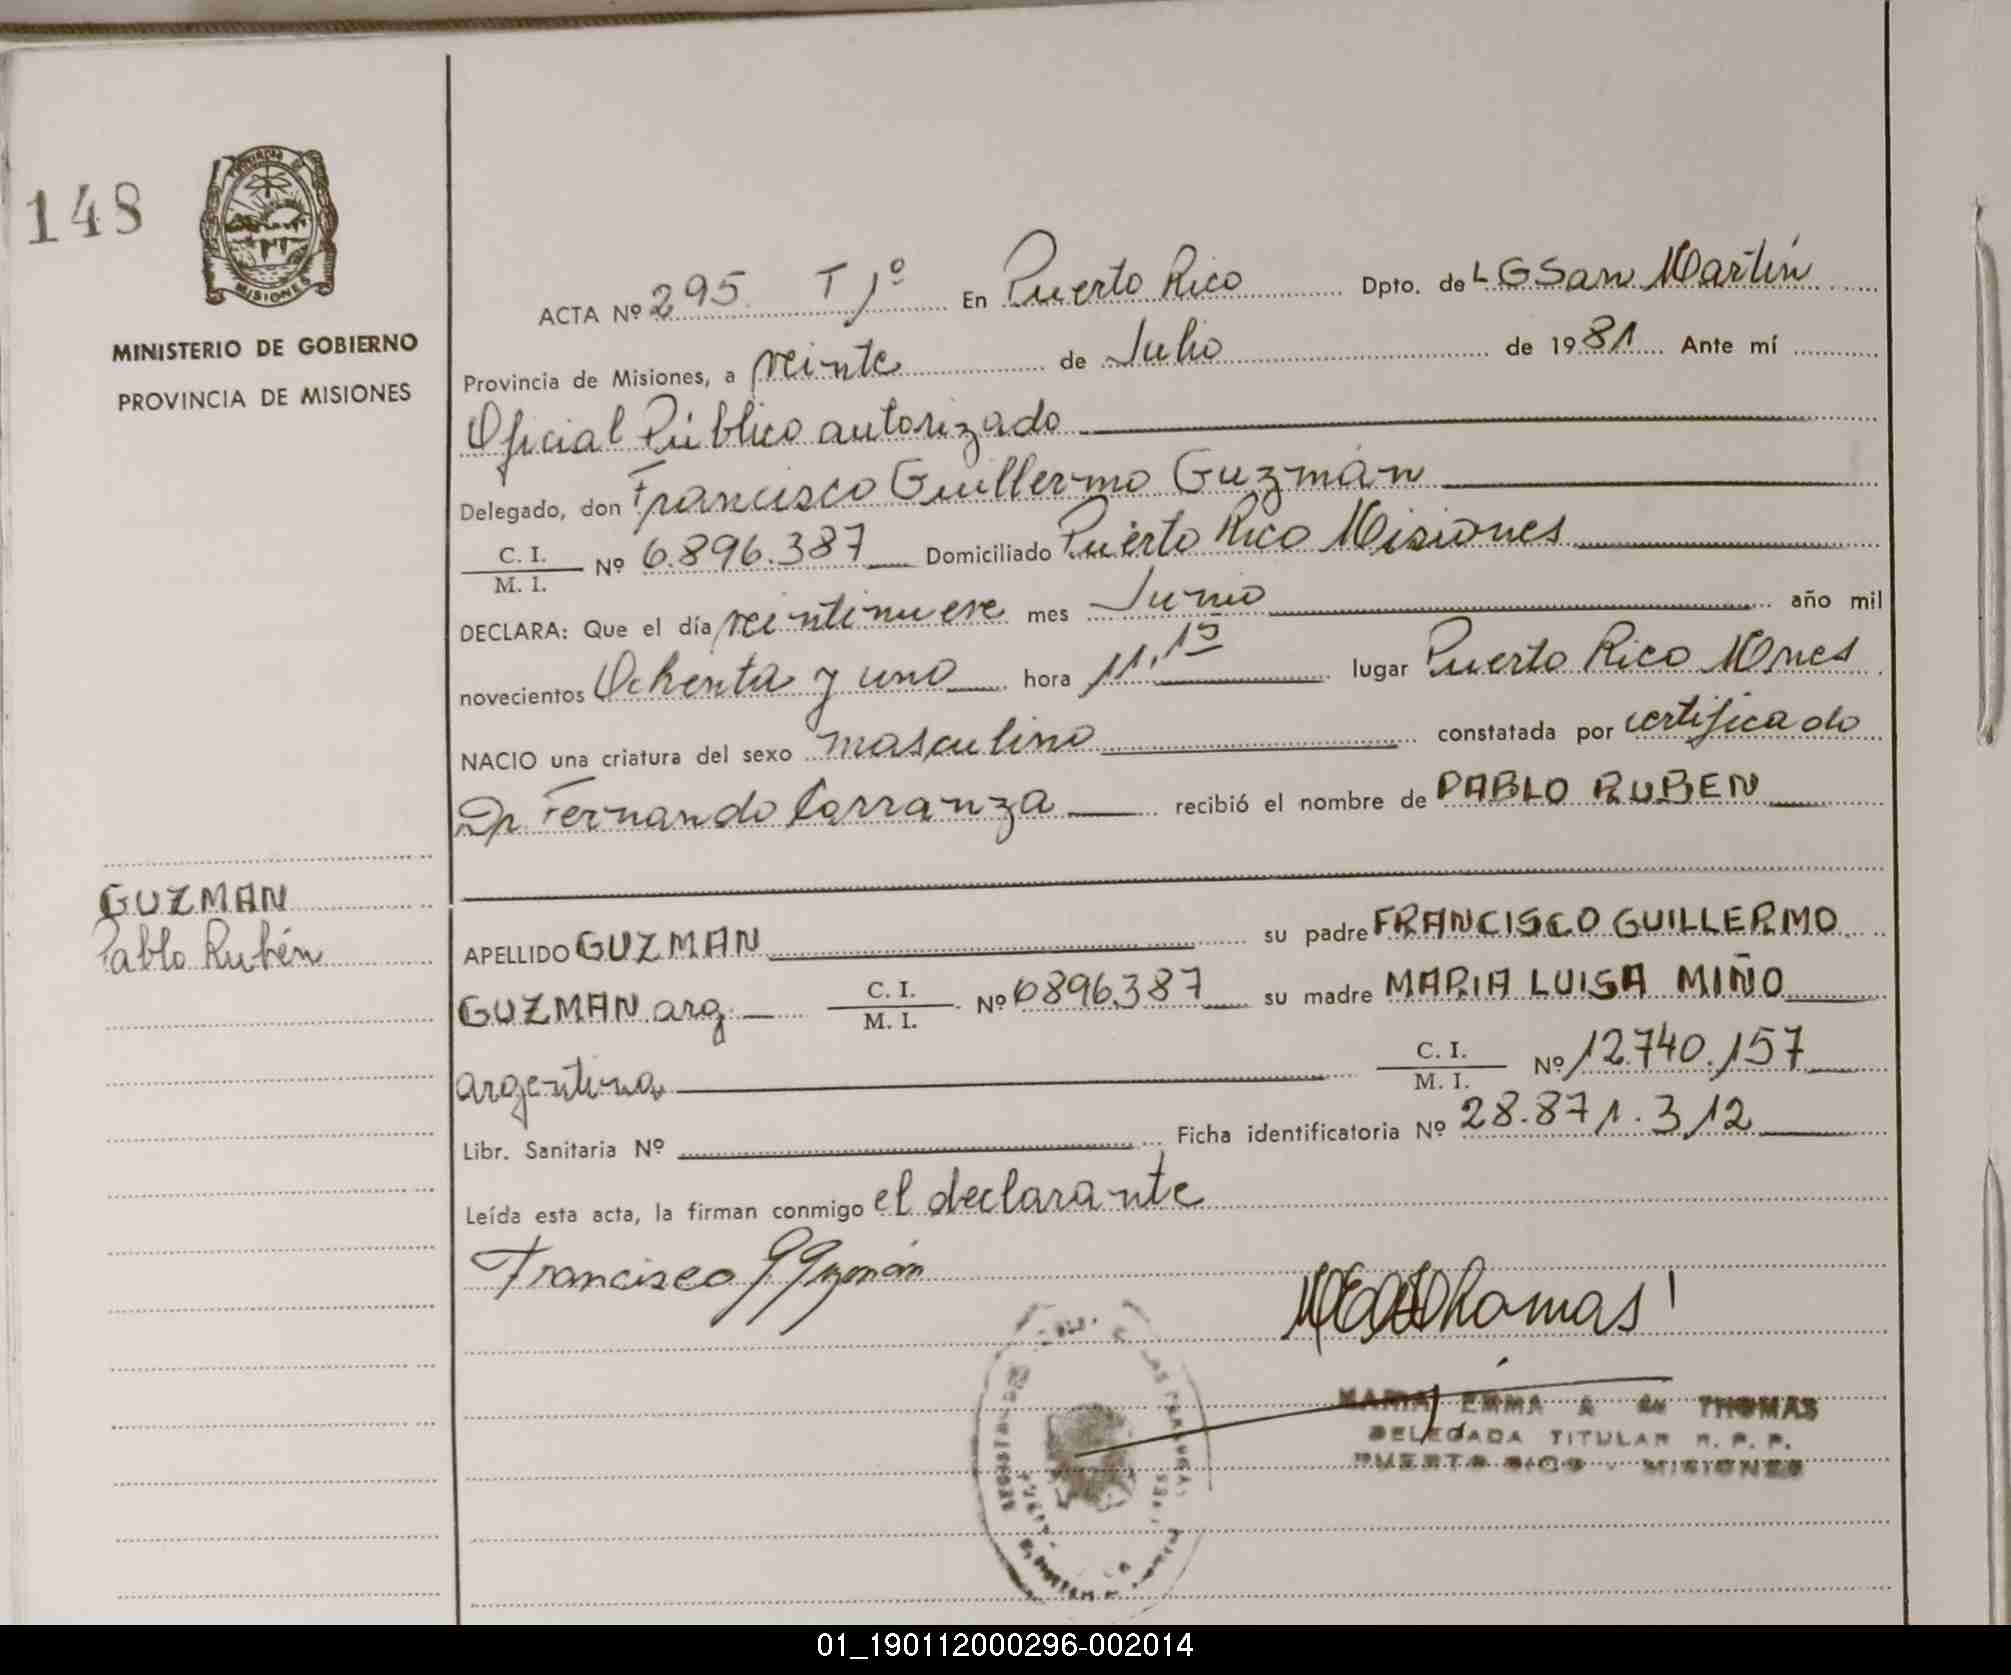 148
MISIONES
MINISTERIO DE GOBIERNO
PROVINCIA DE MISIONES
ACTA Nº 295 T 1º En Puerto Rico Dpto. de L G San Martín
Provincia de Misiones, a veinte de Julio de 1981 Ante mí
Oficial Público autorizado
Delegado, don Francisco Guillermo Guzmán
C. I.
M. I. Nº 6.896.387 Domiciliado Puerto Rico Misiones
DECLARA: Que el día veintinueve mes Junio año mil
novecientos Ochenta y uno hora 11,15 lugar Puerto Rico Mnes
NACIO una criatura del sexo masculino constatada por certificado
Dr. Fernando Carranza recibió el nombre de PABLO RUBEN
GUZMAN
Pablo Rubén
APELLIDO GUZMAN su padre FRANCISCO GUILLERMO
GUZMAN arg. C. I.
M. I. Nº 6896.387 su madre MARIA LUISA MIÑO
argentina C. I.
M. I. Nº 12.740.157
Libr. Sanitaria Nº Ficha identificatoria Nº 28.871.312
Leída esta acta, la firman conmigo el declarante
Francisco G Guzmán
Thomas
MARIA EMMA A de THOMAS
DELEGADA TITULAR R. P. P.
PUERTO RICO - MISIONES
01_190112000296-002014